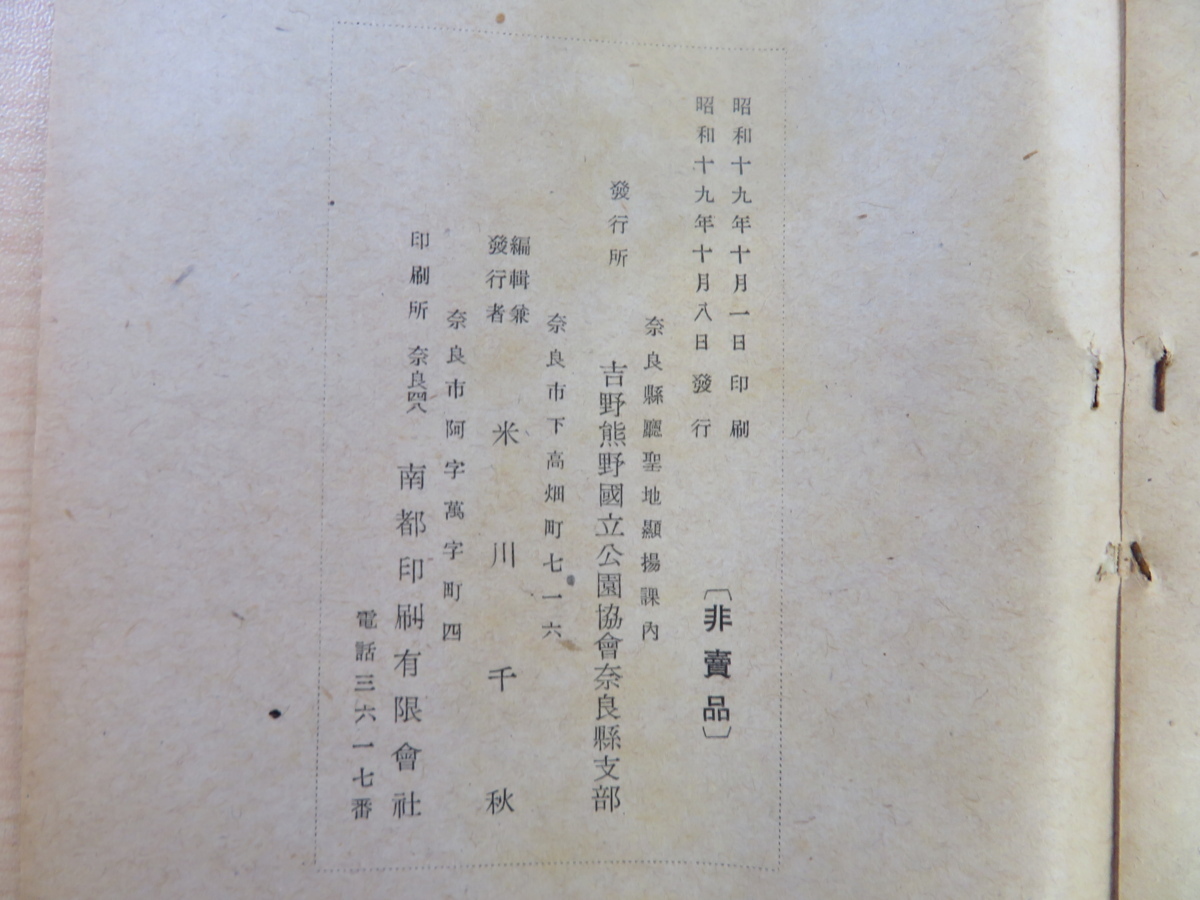 昭和十九年十月一日印刷
昭和十九年十月八日發行
〔非賣品〕
奈良縣廳聖地顯揚課內
發行所 吉野熊野國立公園協會奈良縣支部
奈良市下高畑町七一六
編輯兼
發行者 米川千秋
奈良市阿字萬字町四
印刷所 奈良四八 南都印刷有限會社
電話三六一七番